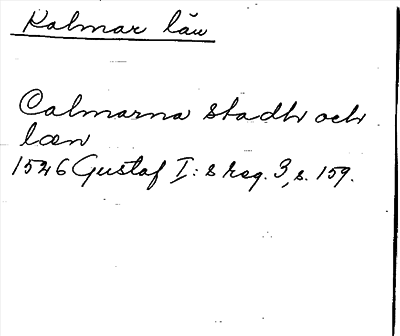 Kalmar län
Calmarna stadh och
læn
1526 Gustaf I:s reg. 3, s. 159.